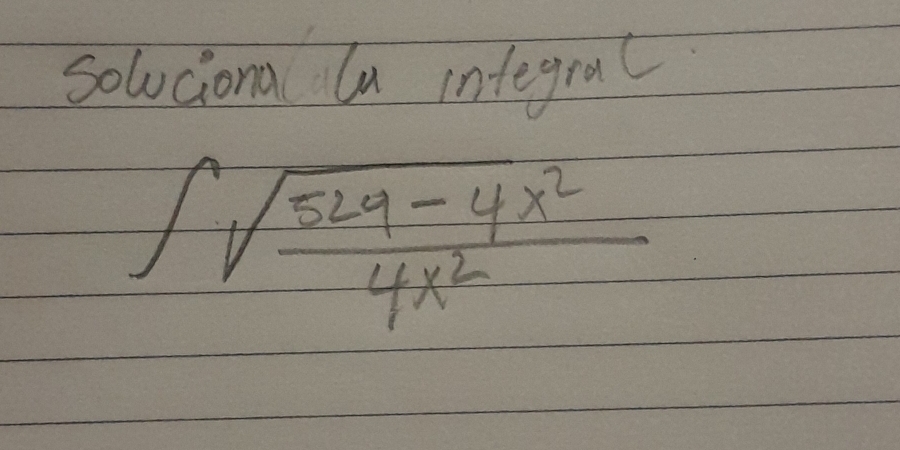 Soluciona la integral
∫ √529 - 4x² / 4x²